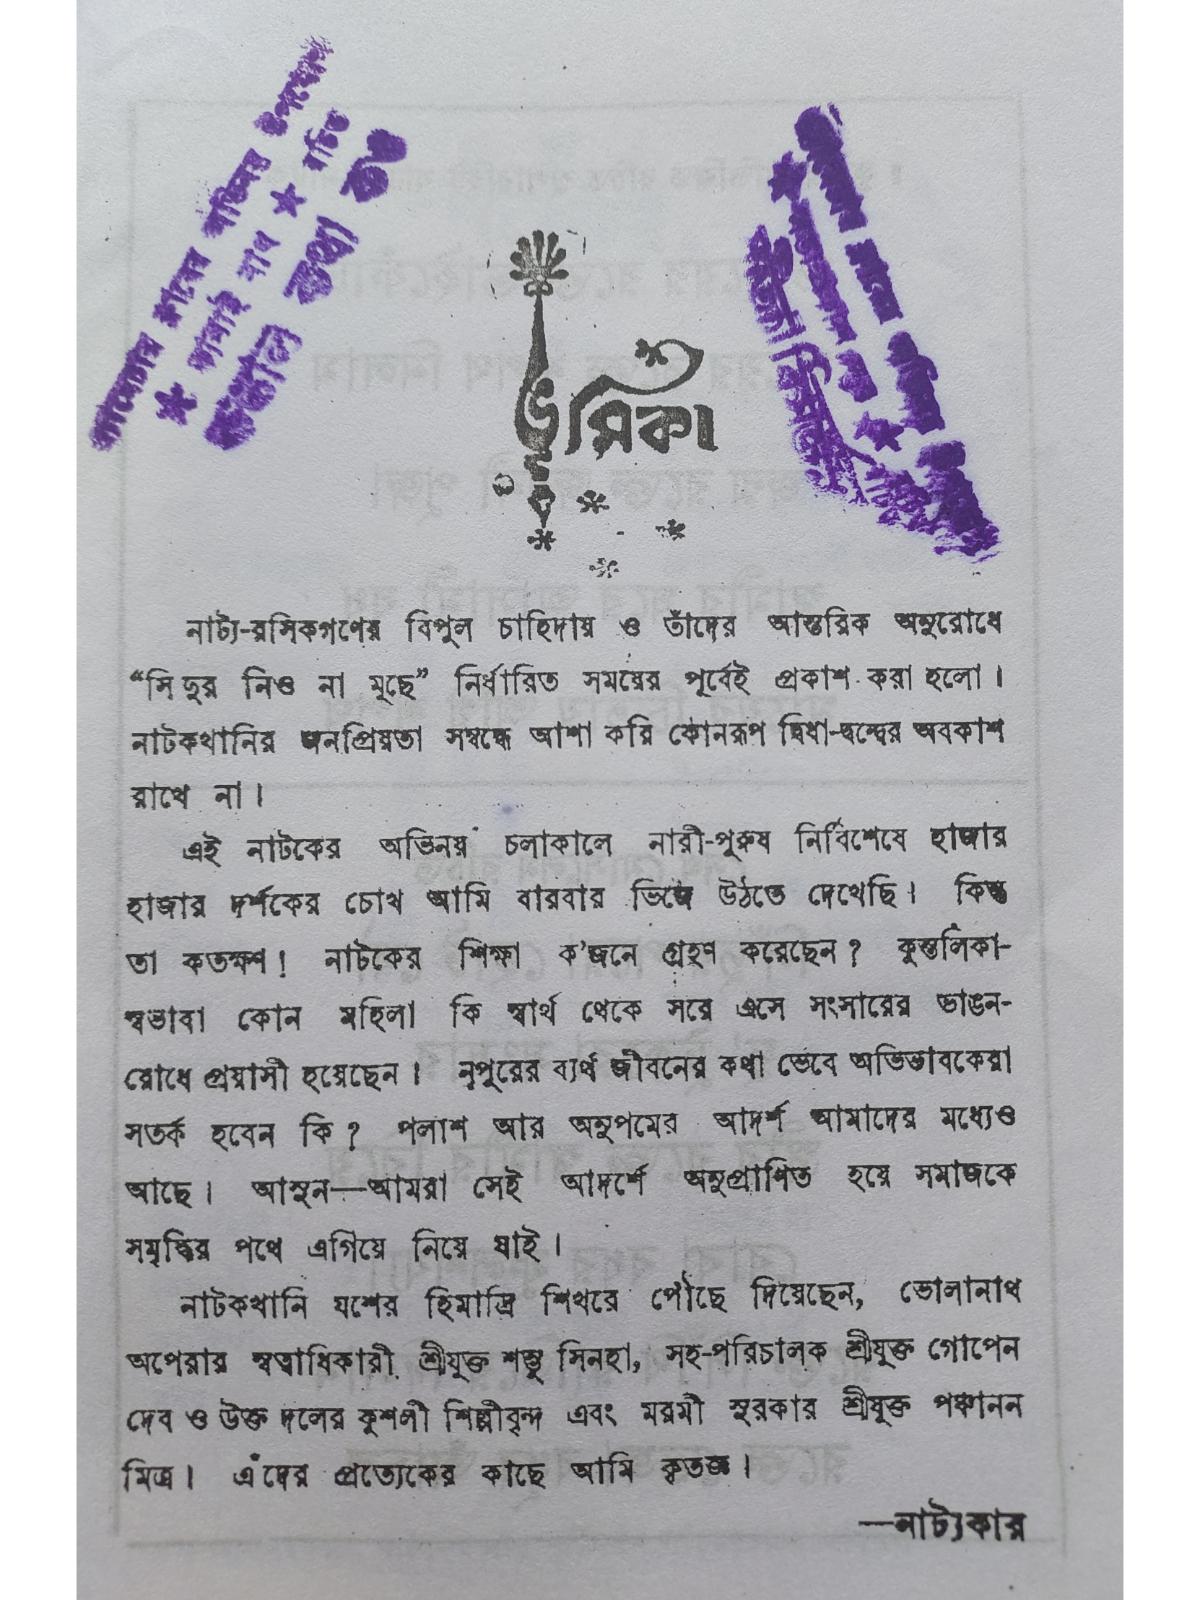 সখেচার ক্লাবের অভিনয় উপযোগী
★ কানাই নাথ ★ রচিত
ভূমিকা
নাট্য-রসিকগণের বিপুল চাহিদায় ও তাঁদের আন্তরিক অনুরোধে
“সিঁদুর নিও না মুছে” নির্ধারিত সময়ের পূর্বেই প্রকাশ করা হলো।
নাটকখানির জনপ্রিয়তা সম্বন্ধে আশা করি কোনরূপ দ্বিধা-দ্বন্দ্বের অবকাশ
রাখে না।
এই নাটকের অভিনয় চলাকালে নারী-পুরুষ নির্বিশেষে হাজার
হাজার দর্শকের চোখ আমি বারবার ভিজে উঠতে দেখেছি। কিন্তু
তা কতক্ষণ! নাটকের শিক্ষা ক'জনে গ্রহণ করেছেন? কুন্তলিকা-
স্বভাবা কোন মহিলা কি স্বার্থ থেকে সরে এসে সংসারের ভাঙন-
রোধে প্রয়াসী হয়েছেন। নূপুরের ব্যর্থ জীবনের কথা ভেবে অভিভাবকেরা
সতর্ক হবেন কি? পলাশ আর অনুপমের আদর্শ আমাদের মধ্যেও
আছে। আসুন—আমরা সেই আদর্শে অনুপ্রাণিত হয়ে সমাজকে
সমৃদ্ধির পথে এগিয়ে নিয়ে যাই।
নাটকখানি যশের হিমাদ্রি শিখরে পৌঁছে দিয়েছেন, ভোলানাথ
অপেরার স্বত্বাধিকারী শ্রীযুক্ত শম্ভু সিনহা, সহ-পরিচালক শ্রীযুক্ত গোপেন
দেব ও উক্ত দলের কুশলী শিল্পীবৃন্দ এবং মরমী সুরকার শ্রীযুক্ত পঞ্চানন
মিত্র। এঁদের প্রত্যেকের কাছে আমি কৃতজ্ঞ।
—নাট্যকার